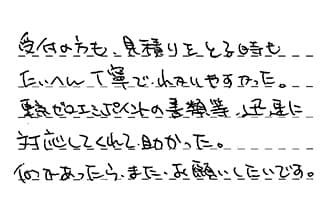 受付の方も、見積りをとる時も
たいへん丁寧で、わかいやすかった。
ゼロエミポイントの書類等、迅速に
対応してくれて助かった。
何かあったら、また、お願いしたいです。